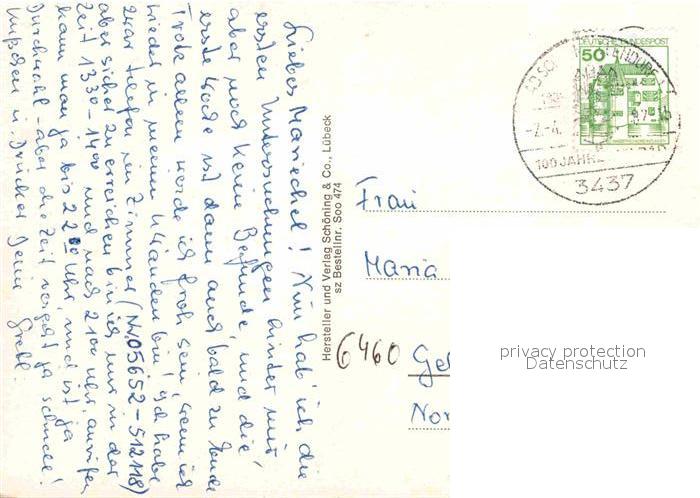 Liebes Mariechel! Nun hab' ich die
ersten Untersuchungen hinter mir,
aber noch keine Befunde, und die
erste Woche ist dann auch bald zu Ende
Trotz allem werde ich froh sein, wenn ich
wieder in meinen 4 Wänden bin! Ich habe
zwar Telefon im Zimmer (05652-512118)
aber sicher zu erreichen bin ich nur in der
Zeit 1330-1400 und nach 2100 Uhr, anrufen
kann man ja bis 2200 Uhr, und ist ja
Durchwahl - aber die Zeit vergeht ja schnell!
Küßchen u. Drücker Deine Gretl.
Hersteller und Verlag Schöning & Co., Lübeck
sz Bestellnr. Soo 474
DEUTSCHE BUNDESPOST
50
BAD SOODEN-ALLENDORF
100 JAHRE
3437
Frau
Maria
6460 Gel
Nor
privacy protection
Datenschutz